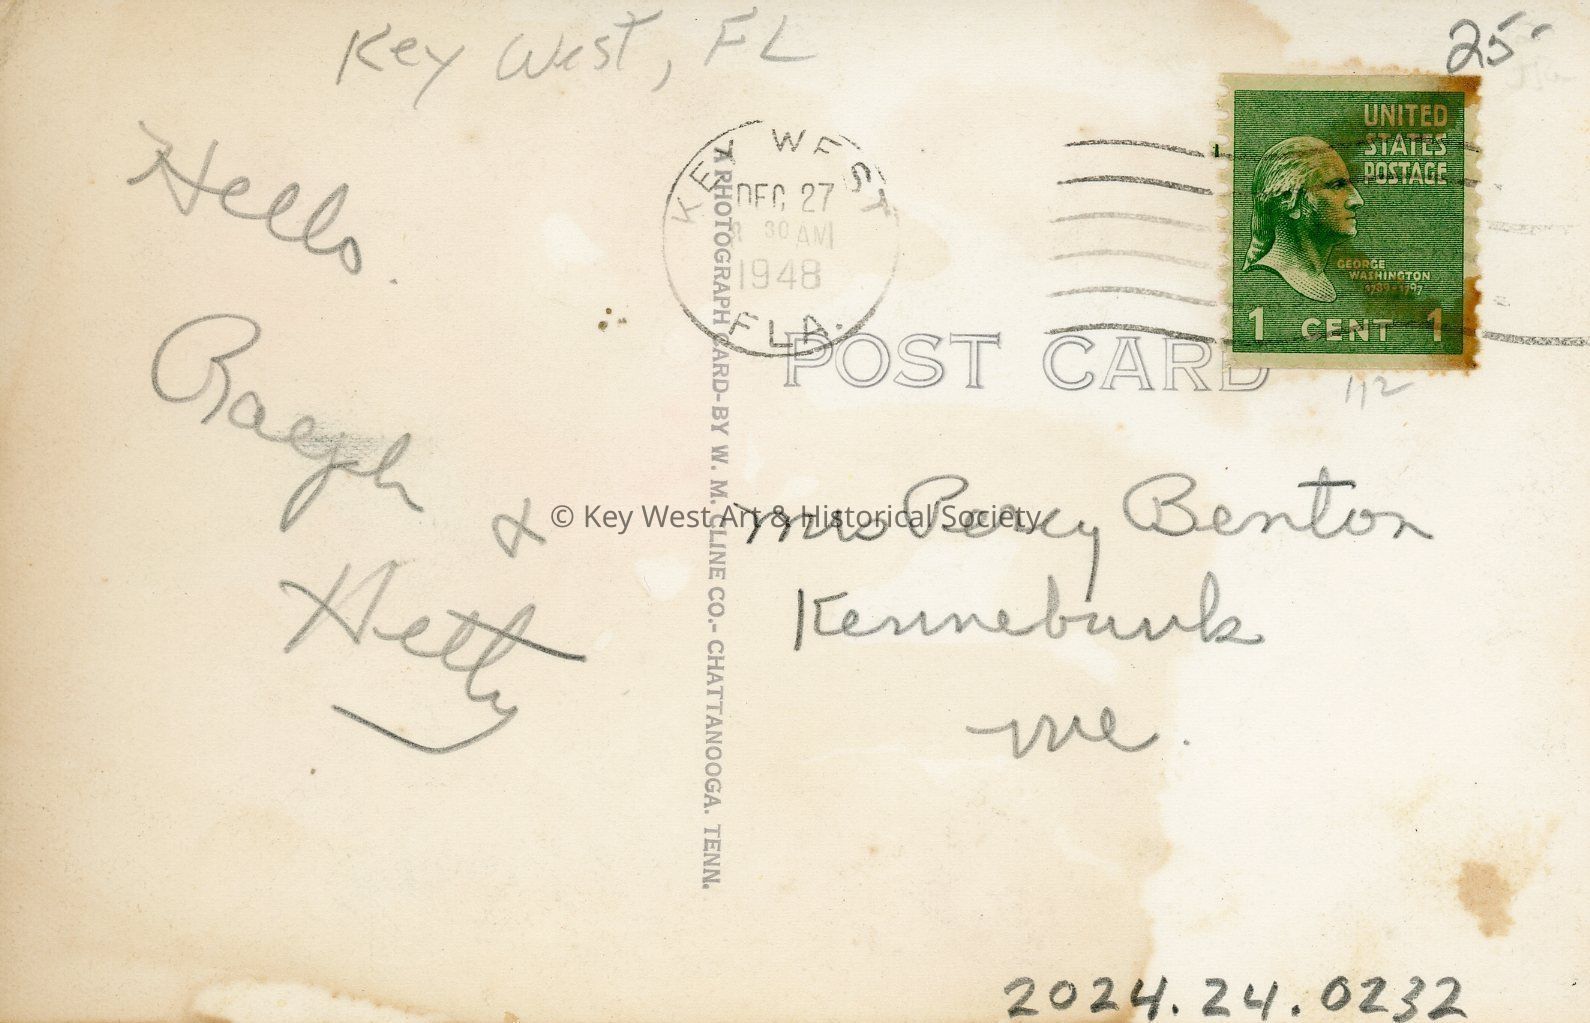 Key West, FL
25
Hello.
Ralph
&
Hetty
KEY WEST
DEC 27
30 AM
1948
FLA.
UNITED
STATES
POSTAGE
GEORGE
WASHINGTON
1789-1797
1 CENT 1
POST CARD
112
A PHOTOGRAPH CARD-BY W. M. CLINE CO.- CHATTANOOGA. TENN.
© Key West Art & Historical Society
Mrs Percy Benton
Kennebunk
Me.
2024.24.0232